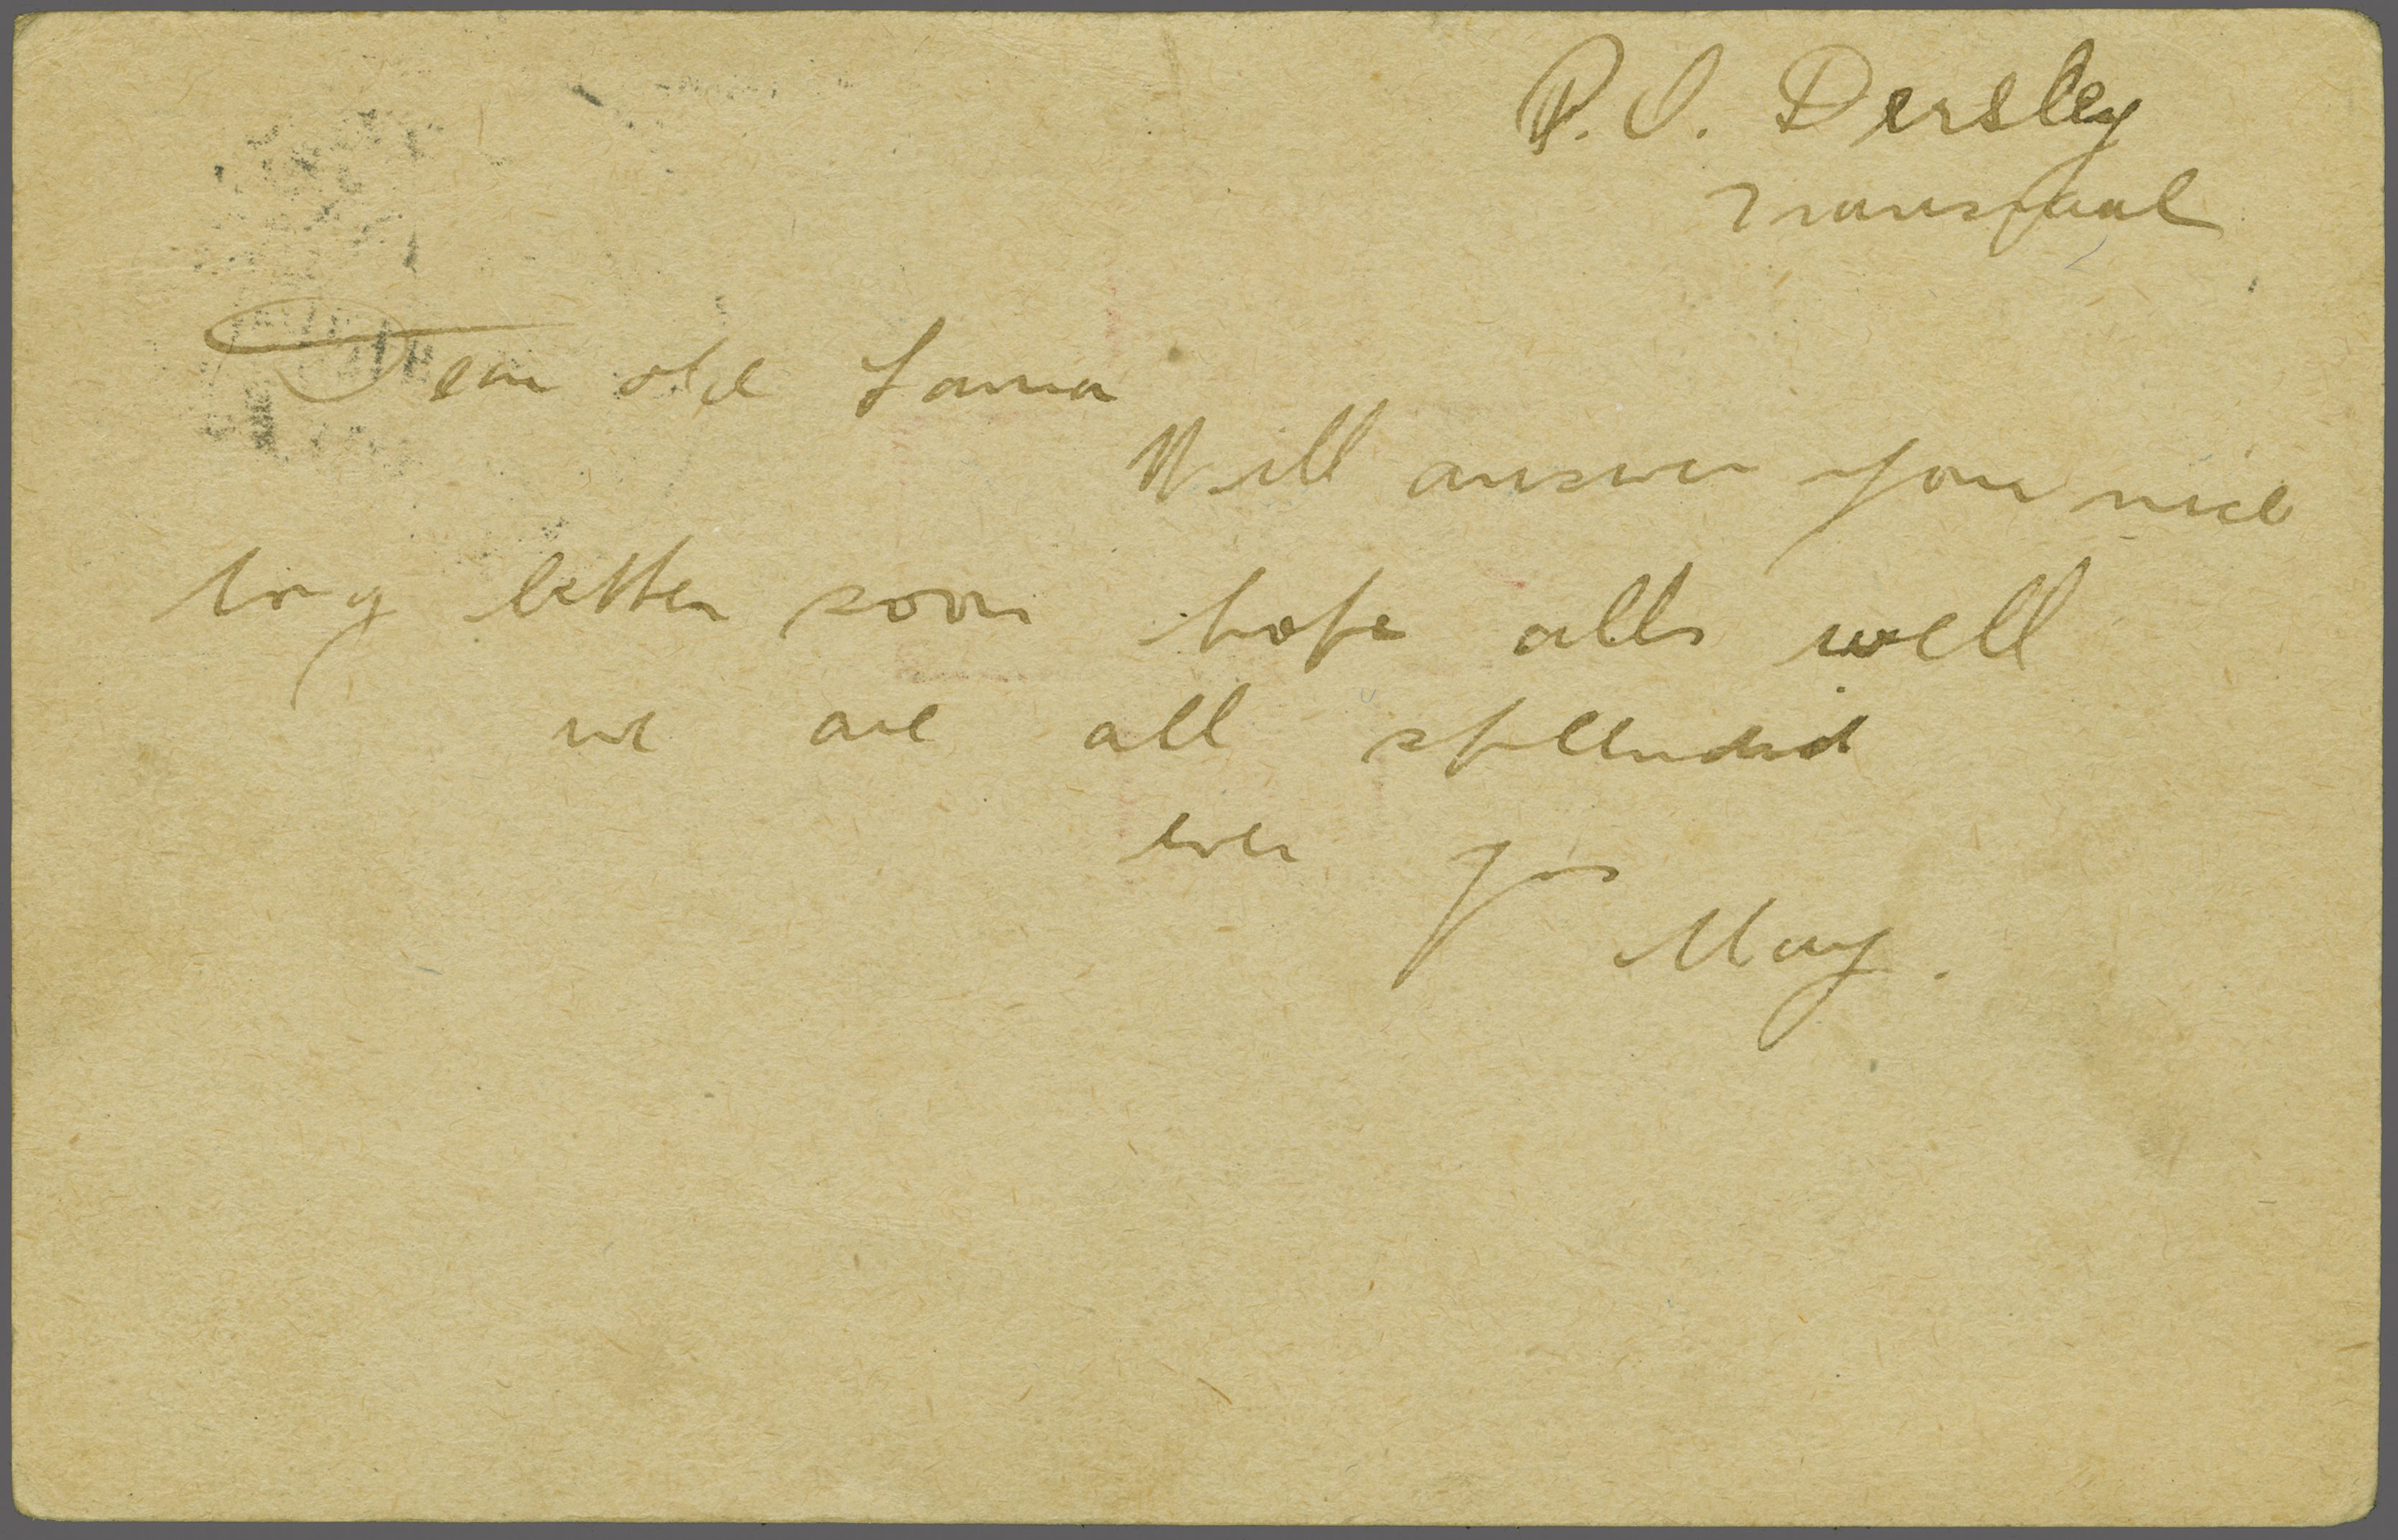 P.O. Dersley
Transvaal
Dear old
Will answer your nice
long letter soon hope alls well
we are all splendid
ever yrs
May.